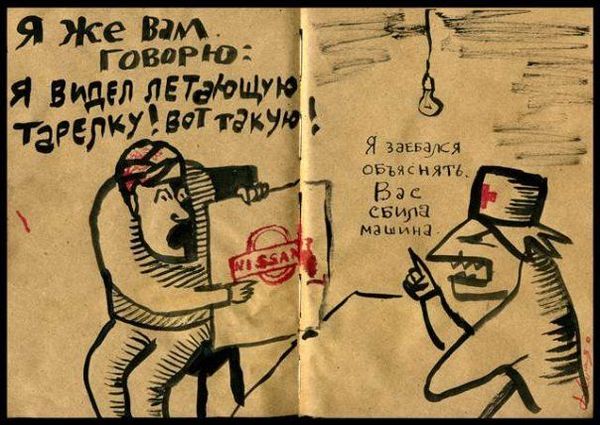 Я же Вам
говорю:
Я видел летающую
тарелку! вот такую!
NISSAN
Я заебался
объяснять.
Вас
сбила
машина.